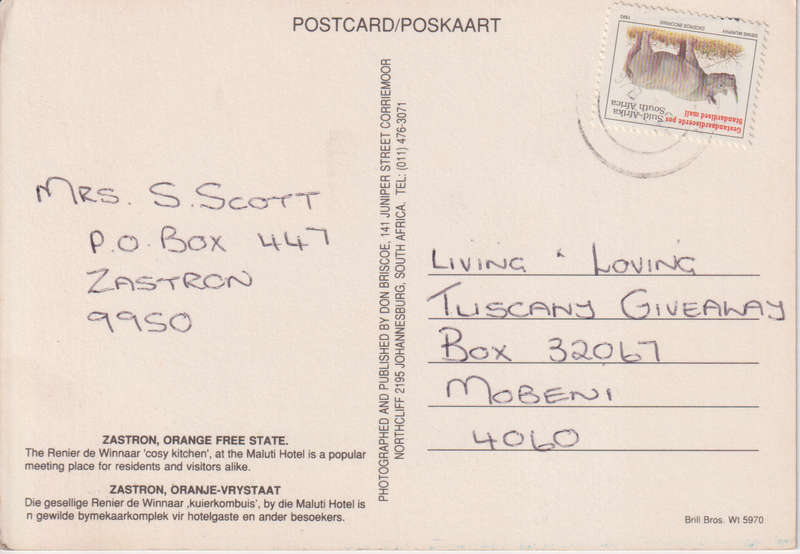 POSTCARD/POSKAART
Gestandaardiseerde pos
Standardised mail
Suid-Afrika
South Africa
DENIS MURPHY
DICEROS BICORNIS
1993
MRS. S. SCOTT
P.O. BOX 447
ZASTRON
9950
PHOTOGRAPHED AND PUBLISHED BY DON BRISCOE, 141 JUNIPER STREET CORRIEMOOR
NORTHCLIFF 2195 JOHANNESBURG, SOUTH AFRICA. TEL: (011) 476-3071
LIVING & LOVING
TUSCANY GIVEAWAY
BOX 32067
MOBENI
4060
ZASTRON, ORANGE FREE STATE.
The Renier de Winnaar 'cosy kitchen', at the Maluti Hotel is a popular
meeting place for residents and visitors alike.
ZASTRON, ORANJE-VRYSTAAT
Die gesellige Renier de Winnaar ,kuierkombuis', by die Maluti Hotel is
n gewilde bymekaarkomplek vir hotelgaste en ander besoekers.
Brill Bros. Wt 5970